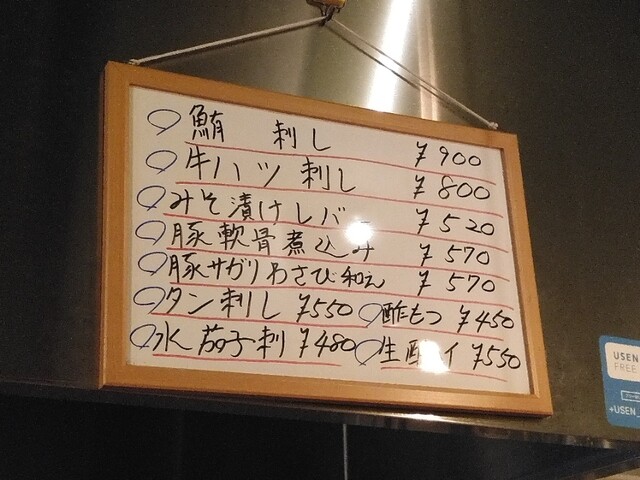 鮪 刺し ¥900
牛ハツ刺し ¥800
みそ漬けレバー ¥520
豚軟骨煮込み ¥570
豚サガリわさび和え ¥570
タン刺し ¥550 酢もつ ¥450
水茄子刺 ¥480 生 ¥550
USEN
FREE
+USEN_